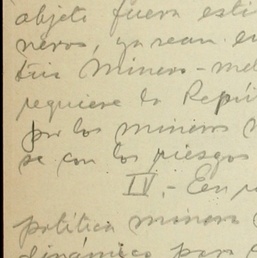 objeto fuera esti
neros, ya sean e
tria minero-me
requiere la Repú
por los mineros
se con los riesgos
IV.- En
política minera
dinámico para